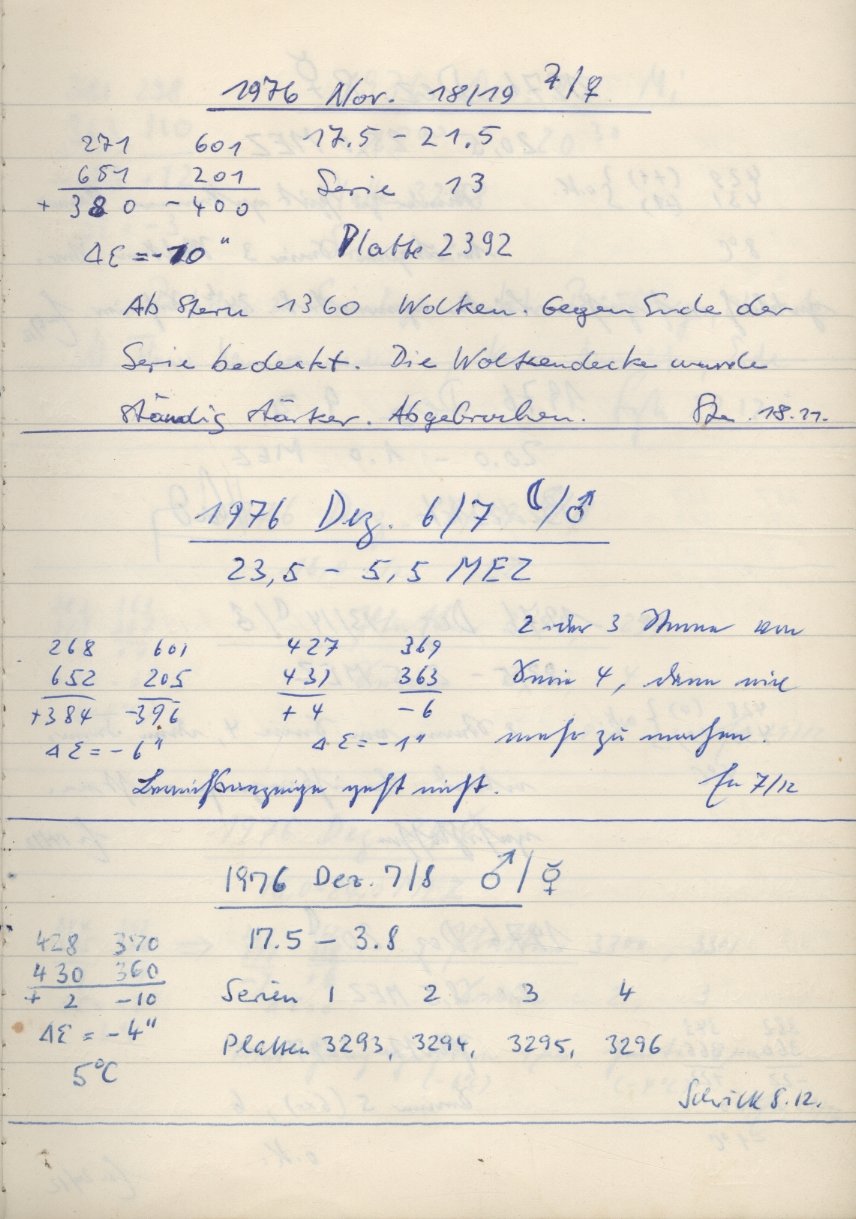 1976 Nov. 18/19 ♃/♀
271 601 17.5 - 21.5
651 201 Serie 13
+ 380 - 400
Δε = -10" Platte 2392
Ab Stern 1360 Wolken. Gegen Ende der
Serie bedeckt. Die Wolkendecke wurde
ständig stärker. Abgebrochen. 18.11.
1976 Dez. 6/7 ☾/♂
23,5 - 5,5 MEZ
2 oder 3 Sterne von
268 601 427 369
652 205 431 363 Serie 4, dann nix
+384 -396 + 4 - 6
Δε = - 6" Δε = -1" mehr zu machen.
geht nicht. 7/12
1976 Dez. 7/8 ♂/☿
428 370 17.5 - 3.8
430 360
+ 2 -10 Serien 1 2 3 4
Δε = - 4"
Platten 3293, 3294, 3295, 3296
5°C
Schick 8.12.